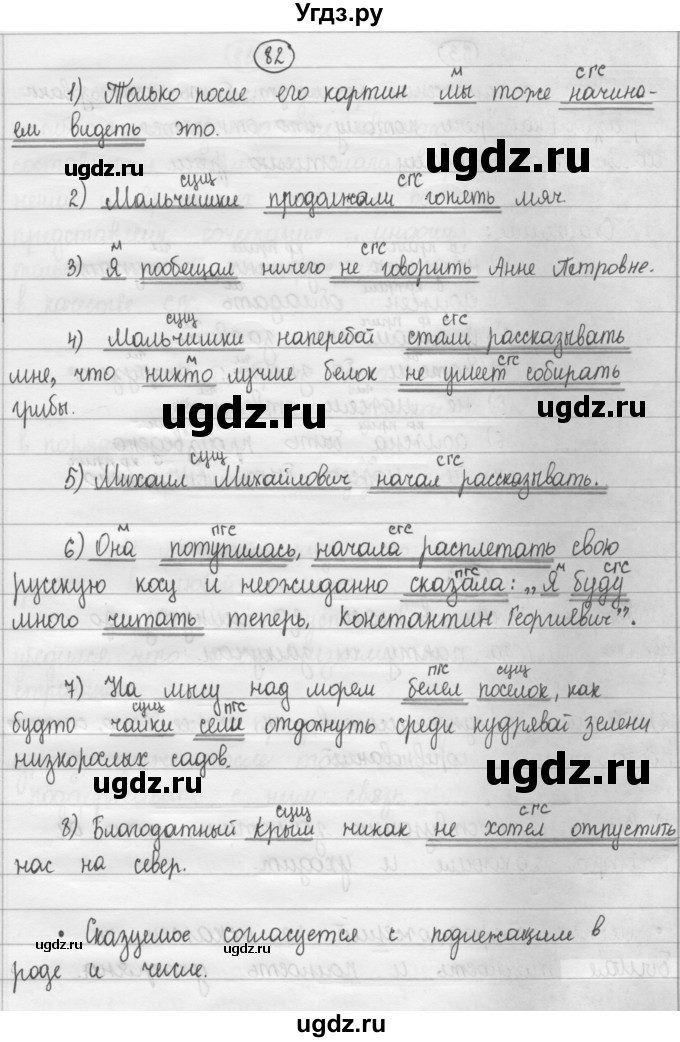 Угдз.ру
82
м сгс
1) Только после его картин мы тоже начина-
ем видеть это.
ugdz.ru
сущ сгс
2) Мальчишки продолжали гонять мяч
м сгс
3) Я пообещал ничего не говорить Анне Петровне.
сущ сгс
4) Мальчишки наперебой стали рассказывать
м сгс
мне, что никто лучше белок не умеет собирать
грибы.
ugdz.ru
ugdz.ru
сущ сгс
5) Михаил Михайлович начал рассказывать.
м пгс сгс
6) Она потупилась, начала расплетать свою
пгс м сгс
русскую косу и неожиданно сказала: „Я буду
много читать теперь, Константин Георгиевич".
ugdz.ru
пгс сущ
7) На мысу над морем белел поселок, как
сущ пгс
будто чайки сели отдохнуть среди кудрявой зелени
низкорослых садов.
ugdz.ru
ugdz.ru
сущ сгс
8) Благодатный Крым никак не хотел отпустить
нас на север.
• Сказуемое согласуется с подлежащим в
ugdz.ru
роде и числе.
ugdz.ru
ugdz.ru
ugdz.ru